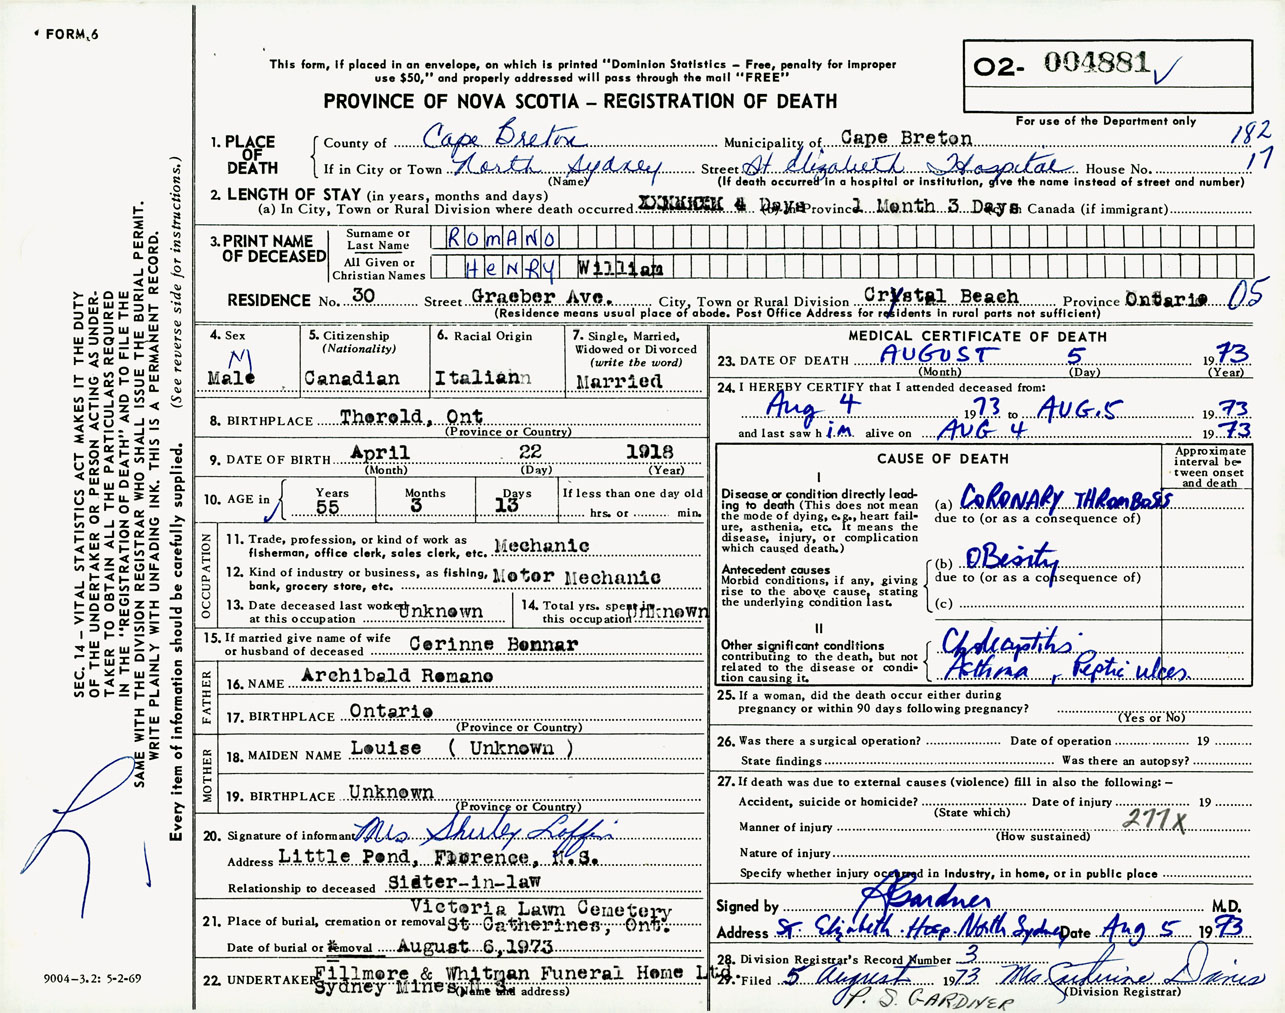 FORM 6
This form, if placed in an envelope, on which is printed "Dominion Statistics – Free, penalty for improper
use $50," and properly addressed will pass through the mail "FREE"
PROVINCE OF NOVA SCOTIA – REGISTRATION OF DEATH
02- 004881
For use of the Department only
182
17
1. PLACE OF DEATH
County of Cape Breton Municipality of Cape Breton
If in City or Town North Sydney Street St Elizabeth Hospital House No.
(Name) (If death occurred in a hospital or institution, give the name instead of street and number)
2. LENGTH OF STAY (in years, months and days)
(a) In City, Town or Rural Division where death occurred XXXXXXX 4 Days (b) In Province 1 Month 3 Days In Canada (if immigrant)
3. PRINT NAME OF DECEASED
Surname or Last Name ROMANO
All Given or Christian Names HENRY William
RESIDENCE No. 30 Street Graeber Ave. City, Town or Rural Division Crystal Beach Province Ontario 05
(Residence means usual place of abode. Post Office Address for residents in rural parts not sufficient)
4. Sex
M
Male
5. Citizenship
(Nationality)
Canadian
6. Racial Origin
Italiann
7. Single, Married,
Widowed or Divorced
(write the word)
Married
8. BIRTHPLACE Thorold, Ont
(Province or Country)
9. DATE OF BIRTH April 22 1918
(Month) (Day) (Year)
10. AGE in
Years 55
Months 3
Days 13
If less than one day old
hrs. or min.
OCCUPATION
11. Trade, profession, or kind of work as
fisherman, office clerk, sales clerk, etc. Mechanic
12. Kind of industry or business, as fishing,
bank, grocery store, etc. Motor Mechanic
13. Date deceased last worked
at this occupation Unknown
14. Total yrs. spent in
this occupation Unknown
15. If married give name of wife
or husband of deceased Corinne Bonnar
FATHER
16. NAME Archibald Romano
17. BIRTHPLACE Ontario
(Province or Country)
MOTHER
18. MAIDEN NAME Louise ( Unknown )
19. BIRTHPLACE Unknown
(Province or Country)
20. Signature of informant Mrs Shirley Loffin
Address Little Pond, Florence, N.S.
Relationship to deceased Sister-in-law
21. Place of burial, cremation or removal Victoria Lawn Cemetery
St Catherines, Ont.
Date of burial or removal August 6, 1973
22. UNDERTAKER Fillmore & Whitman Funeral Home Ltd.
Sydney Mines N.S.
(Name and address)
MEDICAL CERTIFICATE OF DEATH
23. DATE OF DEATH AUGUST 5 1973
(Month) (Day) (Year)
24. I HEREBY CERTIFY that I attended deceased from:
Aug 4 1973 to AUG.5 1973
and last saw him alive on AUG 4 1973
CAUSE OF DEATH
Approximate
interval be-
tween onset
and death
I
Disease or condition directly lead-
ing to death (This does not mean
the mode of dying, e.g., heart fail-
ure, asthenia, etc. It means the
disease, injury, or complication
which caused death.)
(a) CORONARY THROMBOSIS
due to (or as a consequence of)
Antecedent causes
Morbid conditions, if any, giving
rise to the above cause, stating
the underlying condition last.
(b) OBesity
due to (or as a consequence of)
(c)
II
Other significant conditions
contributing to the death, but not
related to the disease or condi-
tion causing it.
Asthma, Peptic ulcer
25. If a woman, did the death occur either during
pregnancy or within 90 days following pregnancy?
(Yes or No)
26. Was there a surgical operation? Date of operation 19
State findings Was there an autopsy?
27. If death was due to external causes (violence) fill in also the following: –
Accident, suicide or homicide? Date of injury 19
(State which)
Manner of injury 277X
(How sustained)
Nature of injury
Specify whether injury occurred in industry, in home, or in public place
Signed by Gardner M.D.
Address St. Elizabeth Hosp. North Sydney Date Aug 5 1973
28. Division Registrar's Record Number 3
29. Filed 5 August 1973 Mrs. Catherine Davis
(Division Registrar)
P. S. GARDNER
SEC. 14 – VITAL STATISTICS ACT MAKES IT THE DUTY
OF THE UNDERTAKER OR PERSON ACTING AS UNDER-
TAKER TO OBTAIN ALL THE PARTICULARS REQUIRED
IN THE "REGISTRATION OF DEATH" AND TO FILE THE
SAME WITH THE DIVISION REGISTRAR WHO SHALL ISSUE THE BURIAL PERMIT.
WRITE PLAINLY WITH UNFADING INK. THIS IS A PERMANENT RECORD.
Every item of information should be carefully supplied. (See reverse side for instructions.)
9004-3.2: 5-2-69